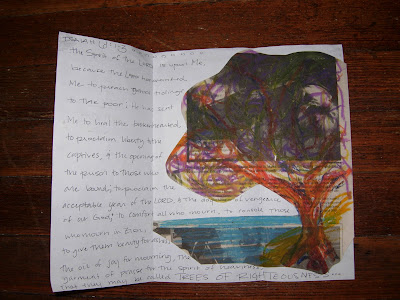 ISAIAH 61:1-3
the Spirit of the Lord is upon Me,
because the Lord has anointed
Me to preach good tidings
to the poor; He has sent
Me to heal the brokenhearted,
to proclaim liberty to the
captives, & the opening of
the prison to those who
are bound; to proclaim the
acceptable year of the LORD, & the day of vengeance
of our God; to comfort all who mourn, to console those
who mourn in Zion,
to give them beauty for ashes,
the oil of joy for mourning, the
garment of praise for the spirit of heaviness
that they may be called TREES OF RIGHTEOUSNESS